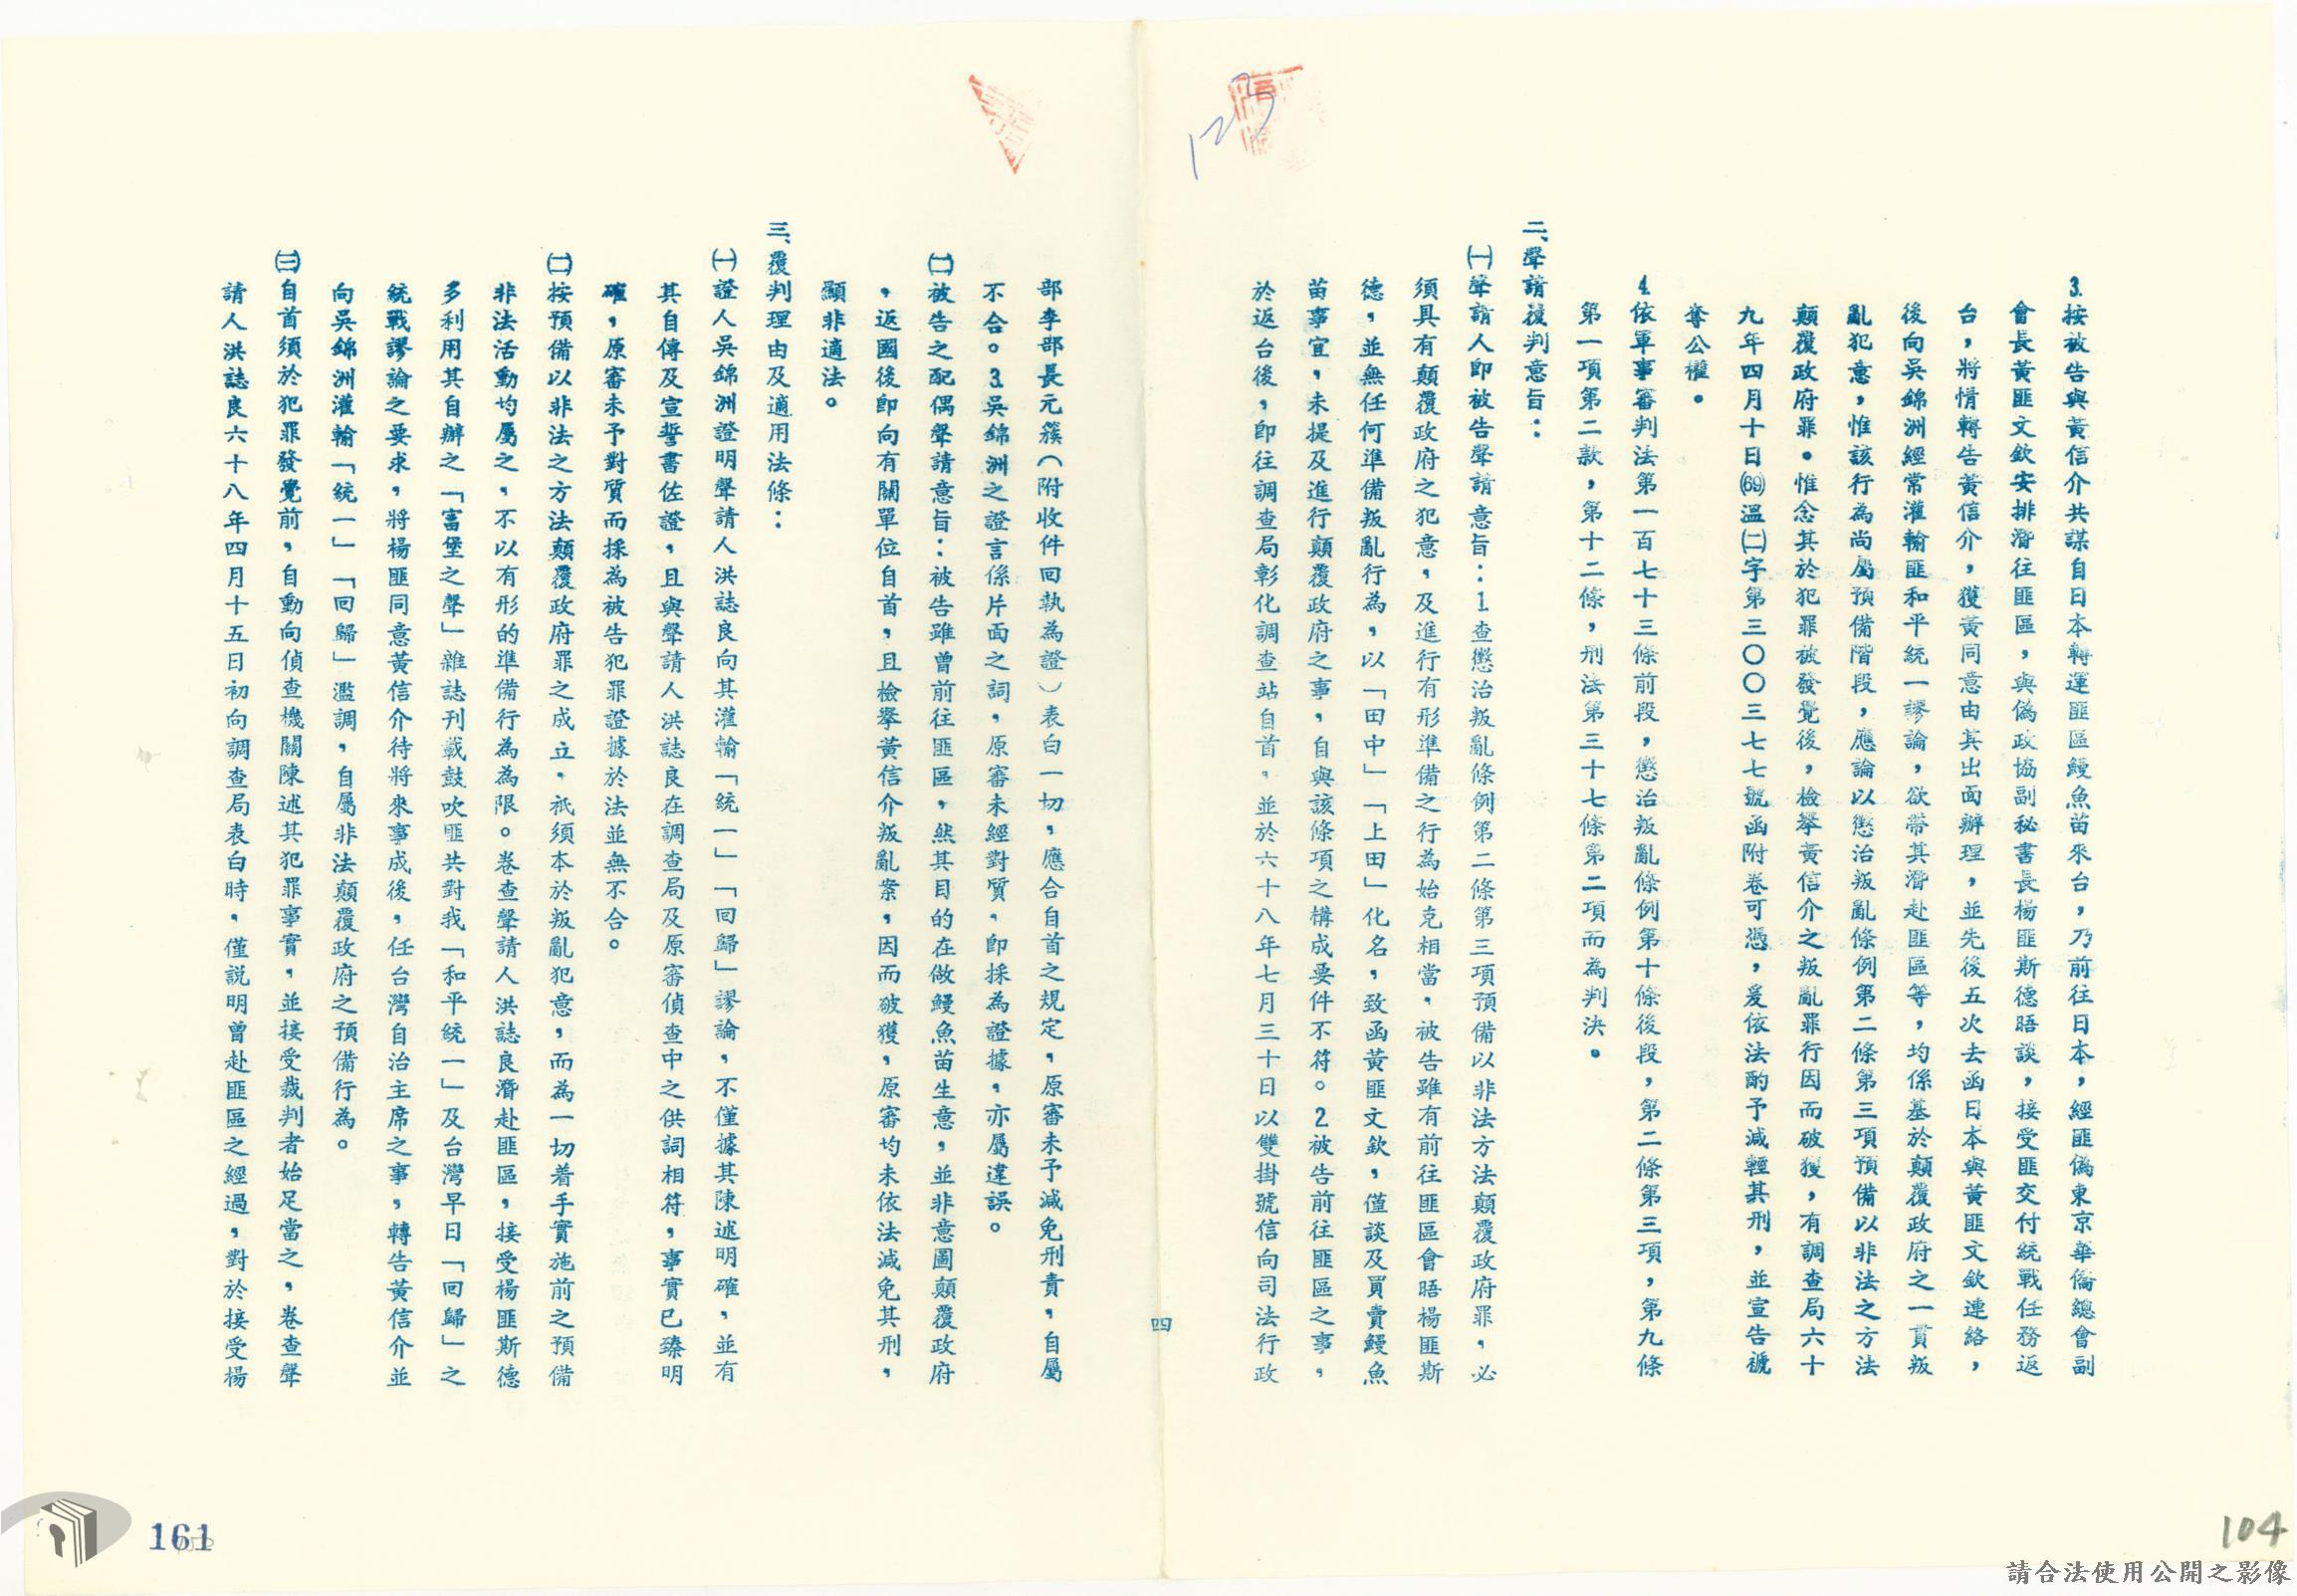 3.按被告與黃信介共謀自日本轉運匪區鰻魚苗來台，乃前往日本，經匪偽東京華僑總會副
會長黃匪文欽安排潛往匪區，與偽政協副秘書長楊匪斯德晤談，接受匪交付統戰任務返
台，將情轉告黃信介，獲黃同意由其出面辦理，並先後五次去函日本與黃匪文欽連絡，
後向吳錦洲經常灌輸匪和平統一謬論，欲帶其潛赴匪區等，均係基於顛覆政府之一貫叛
亂犯意，惟該行為尚屬預備階段，應論以懲治叛亂條例第二條第三項預備以非法之方法
顛覆政府罪。惟念其於犯罪被發覺後，檢舉黃信介之叛亂罪行因而破獲，有調查局六十
九年四月十日(69)溫㈡字第三〇〇三七七號函附卷可憑，爰依法酌予減輕其刑，並宣告褫
奪公權。
4.依軍事審判法第一百七十三條前段，懲治叛亂條例第十條後段，第二條第三項，第九條
第一項第二款，第十二條，刑法第三十七條第二項而為判決。
二、聲請覆判意旨：
㈠聲請人即被告聲請意旨：1.查懲治叛亂條例第二條第三項預備以非法方法顛覆政府罪，必
須具有顛覆政府之犯意，及進行有形準備之行為始克相當，被告雖有前往匪區會晤楊匪斯
德，並無任何準備叛亂行為，以「田中」「上田」化名，致函黃匪文欽，僅談及買賣鰻魚
苗事宜，未提及進行顛覆政府之事，自與該條項之構成要件不符。2.被告前往匪區之事，
於返台後，即往調查局彰化調查站自首，並於六十八年七月三十日以雙掛號信向司法行政
四
部李部長元簇（附收件回執為證）表白一切，應合自首之規定，原審未予減免刑責，自屬
不合。3.吳錦洲之證言係片面之詞，原審未經對質，即採為證據，亦屬違誤。
㈡被告之配偶聲請意旨：被告雖曾前往匪區，然其目的在做鰻魚苗生意，並非意圖顛覆政府
，返國後即向有關單位自首，且檢舉黃信介叛亂案，因而破獲，原審均未依法減免其刑，
顯非適法。
三、覆判理由及適用法條：
㈠證人吳錦洲證明聲請人洪誌良向其灌輸「統一」「回歸」謬論，不僅據其陳述明確，並有
其自傳及宣誓書佐證，且與聲請人洪誌良在調查局及原審偵查中之供詞相符，事實已臻明
確，原審未予對質而採為被告犯罪證據於法並無不合。
㈡按預備以非法之方法顛覆政府罪之成立，祇須本於叛亂犯意，而為一切着手實施前之預備
非法活動均屬之，不以有形的準備行為為限。卷查聲請人洪誌良潛赴匪區，接受楊匪斯德
多利用其自辦之「富堡之聲」雜誌刊載鼓吹匪共對我「和平統一」及台灣早日「回歸」之
統戰謬論之要求，將楊匪同意黃信介待將來事成後，任台灣自治主席之事，轉告黃信介並
向吳錦洲灌輸「統一」「回歸」濫調，自屬非法顛覆政府之預備行為。
㈢自首須於犯罪發覺前，自動向偵查機關陳述其犯罪事實，並接受裁判者始足當之，卷查聲
請人洪誌良六十八年四月十五日初向調查局表白時，僅說明曾赴匪區之經過，對於接受楊
161
104
請合法使用公開之影像